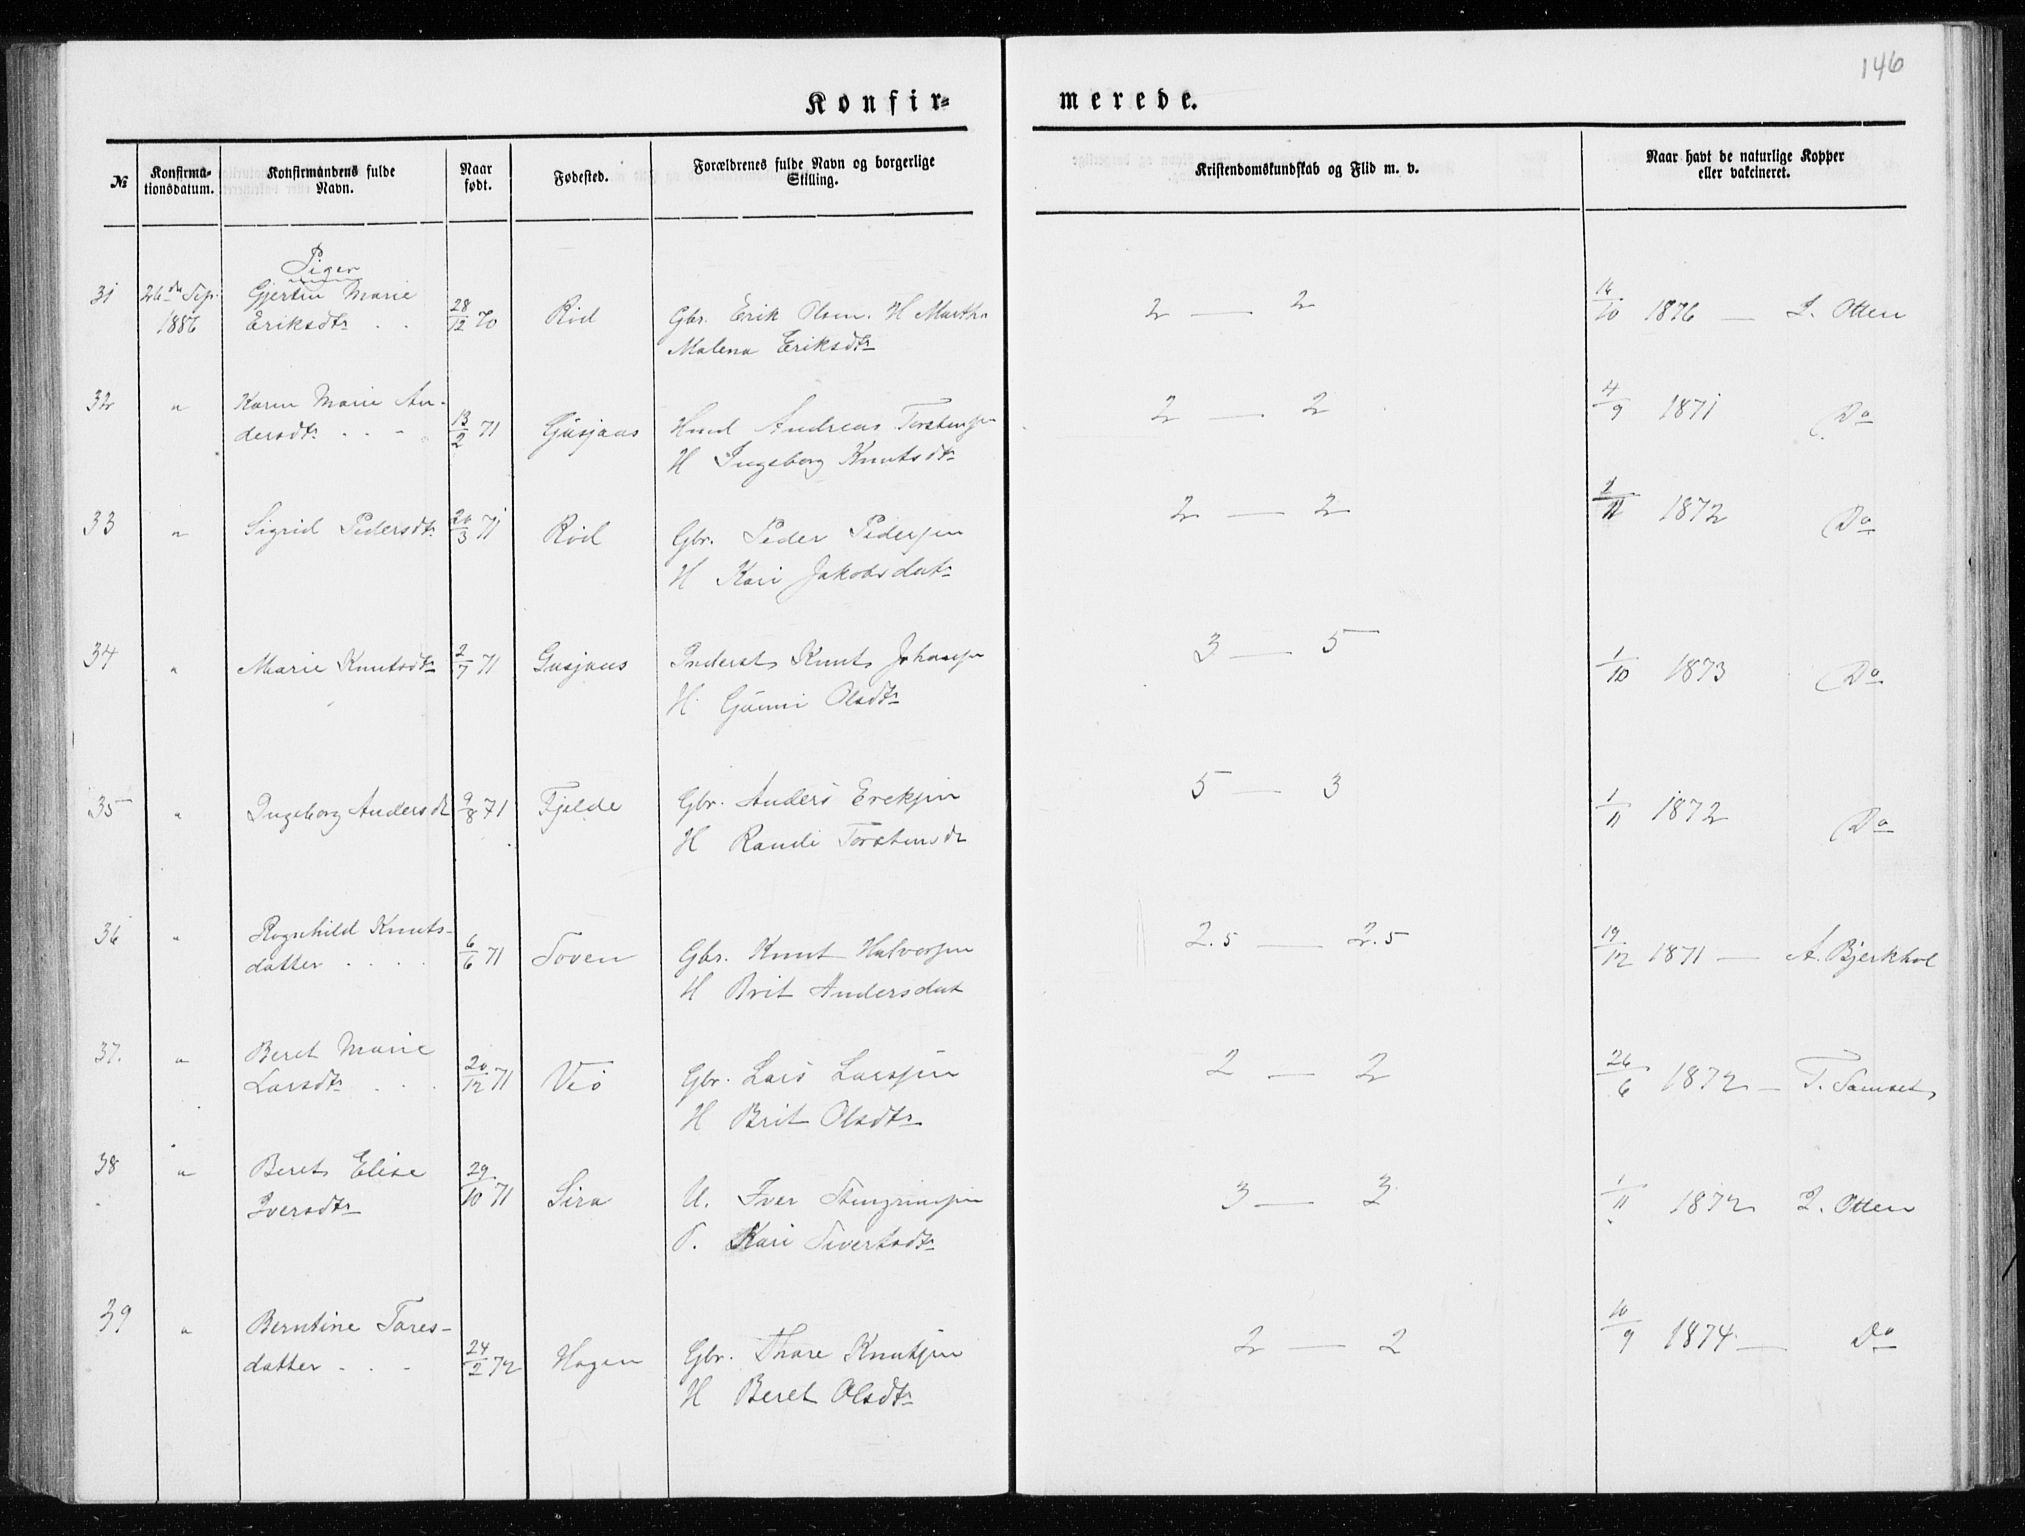 146
Konfir=
merede.
№
Konfirma-
tionsdatum.
Konfirmandens fulde
Navn.
Naar
født.
Fødested.
Forældrenes fulde Navn og borgerlige
Stilling.
Kristendomskundskab og Flid m. v.
Naar havt de naturlige Kopper
eller vakcineret.
Piger
31 26de Sep. Gjertin Marie 28/12 70 Röd Gbr. Erik Olsen. H Marth 2 — 2 16/10 1876 — L. Otten
1886 Eriksdtr . . Malena Eriksdtr
32 " Karen Marie An- 13/2 71 Gusjaas Andreas Torstensen 2 — 2 4/9 1871 Do
dersdtr . . - H Ingeborg Knutsdtr
33 " Sigrid Pedersdtr 20/3 71 Röd Gbr. Peder Pedersen 2 — 2 1872 Do
H Kari Jakobsdatr
34 " Marie Knutsdtr 2/7 71 Gusjaas Inderst Knut Johansen 3 — 5 1/10 1873 Do
H. Gunni Olsdtr
35 " Ingeborg Andersdt 9/8 71 Fjelde Gbr. Anders Ereksen 5 — 3 1/11 1872 Do
H Randi Torstensdt
36 " Ragnhild Knuts- 6/6 71 Toven Gbr. Knut Halvorsen 2.5 — 2.5 19/12 1871 — A. Bjerkhol
datter . . . . H Brit Andersdat
37. " Beret Marie 20/12 71 Veö Gbr. Lars Larssen 2 — 2 26/6 1872 — T. Samset
Larsdtr . . . H Brit Olsdtr
38 " Beret Elise 29/10 71 Sira U. Iver Stengrimsen 3 — 3 1/11 1872 L. Otten
Iversdtr P. Kari Sivertsdtr
39 " Berntine Tores- 24/2 72 Hagen Gbr. Thore Knutsen 2 — 2 10/9 1874 — Do
datter . . - H Beret Olsdtr